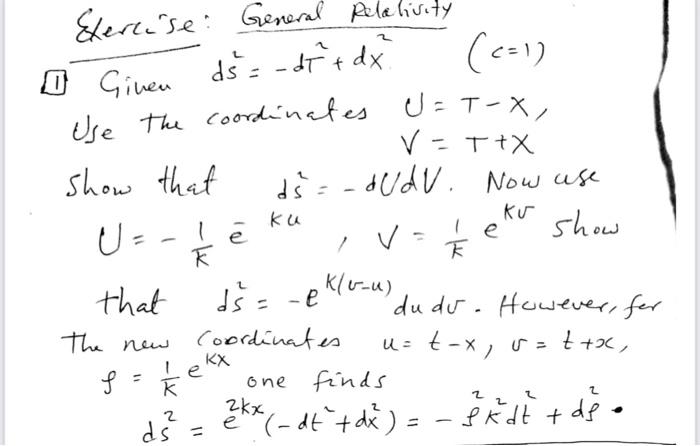 Exercise: General Relativity
1 Given ds² = -dT² + dX². (c=1)
Use the coordinates U = T-X,
V = T+X
Show that ds² = -dUdV. Now use
U = - 1/k e^-ku , V = 1/k e^kv show
that ds² = -e^k(v-u) du dv. However, for
the new coordinates u = t-x, v = t+x,
ρ = 1/k e^kx one finds
ds² = e^2kx (-dt² + dx²) = - ρ²k²dt² + dρ².